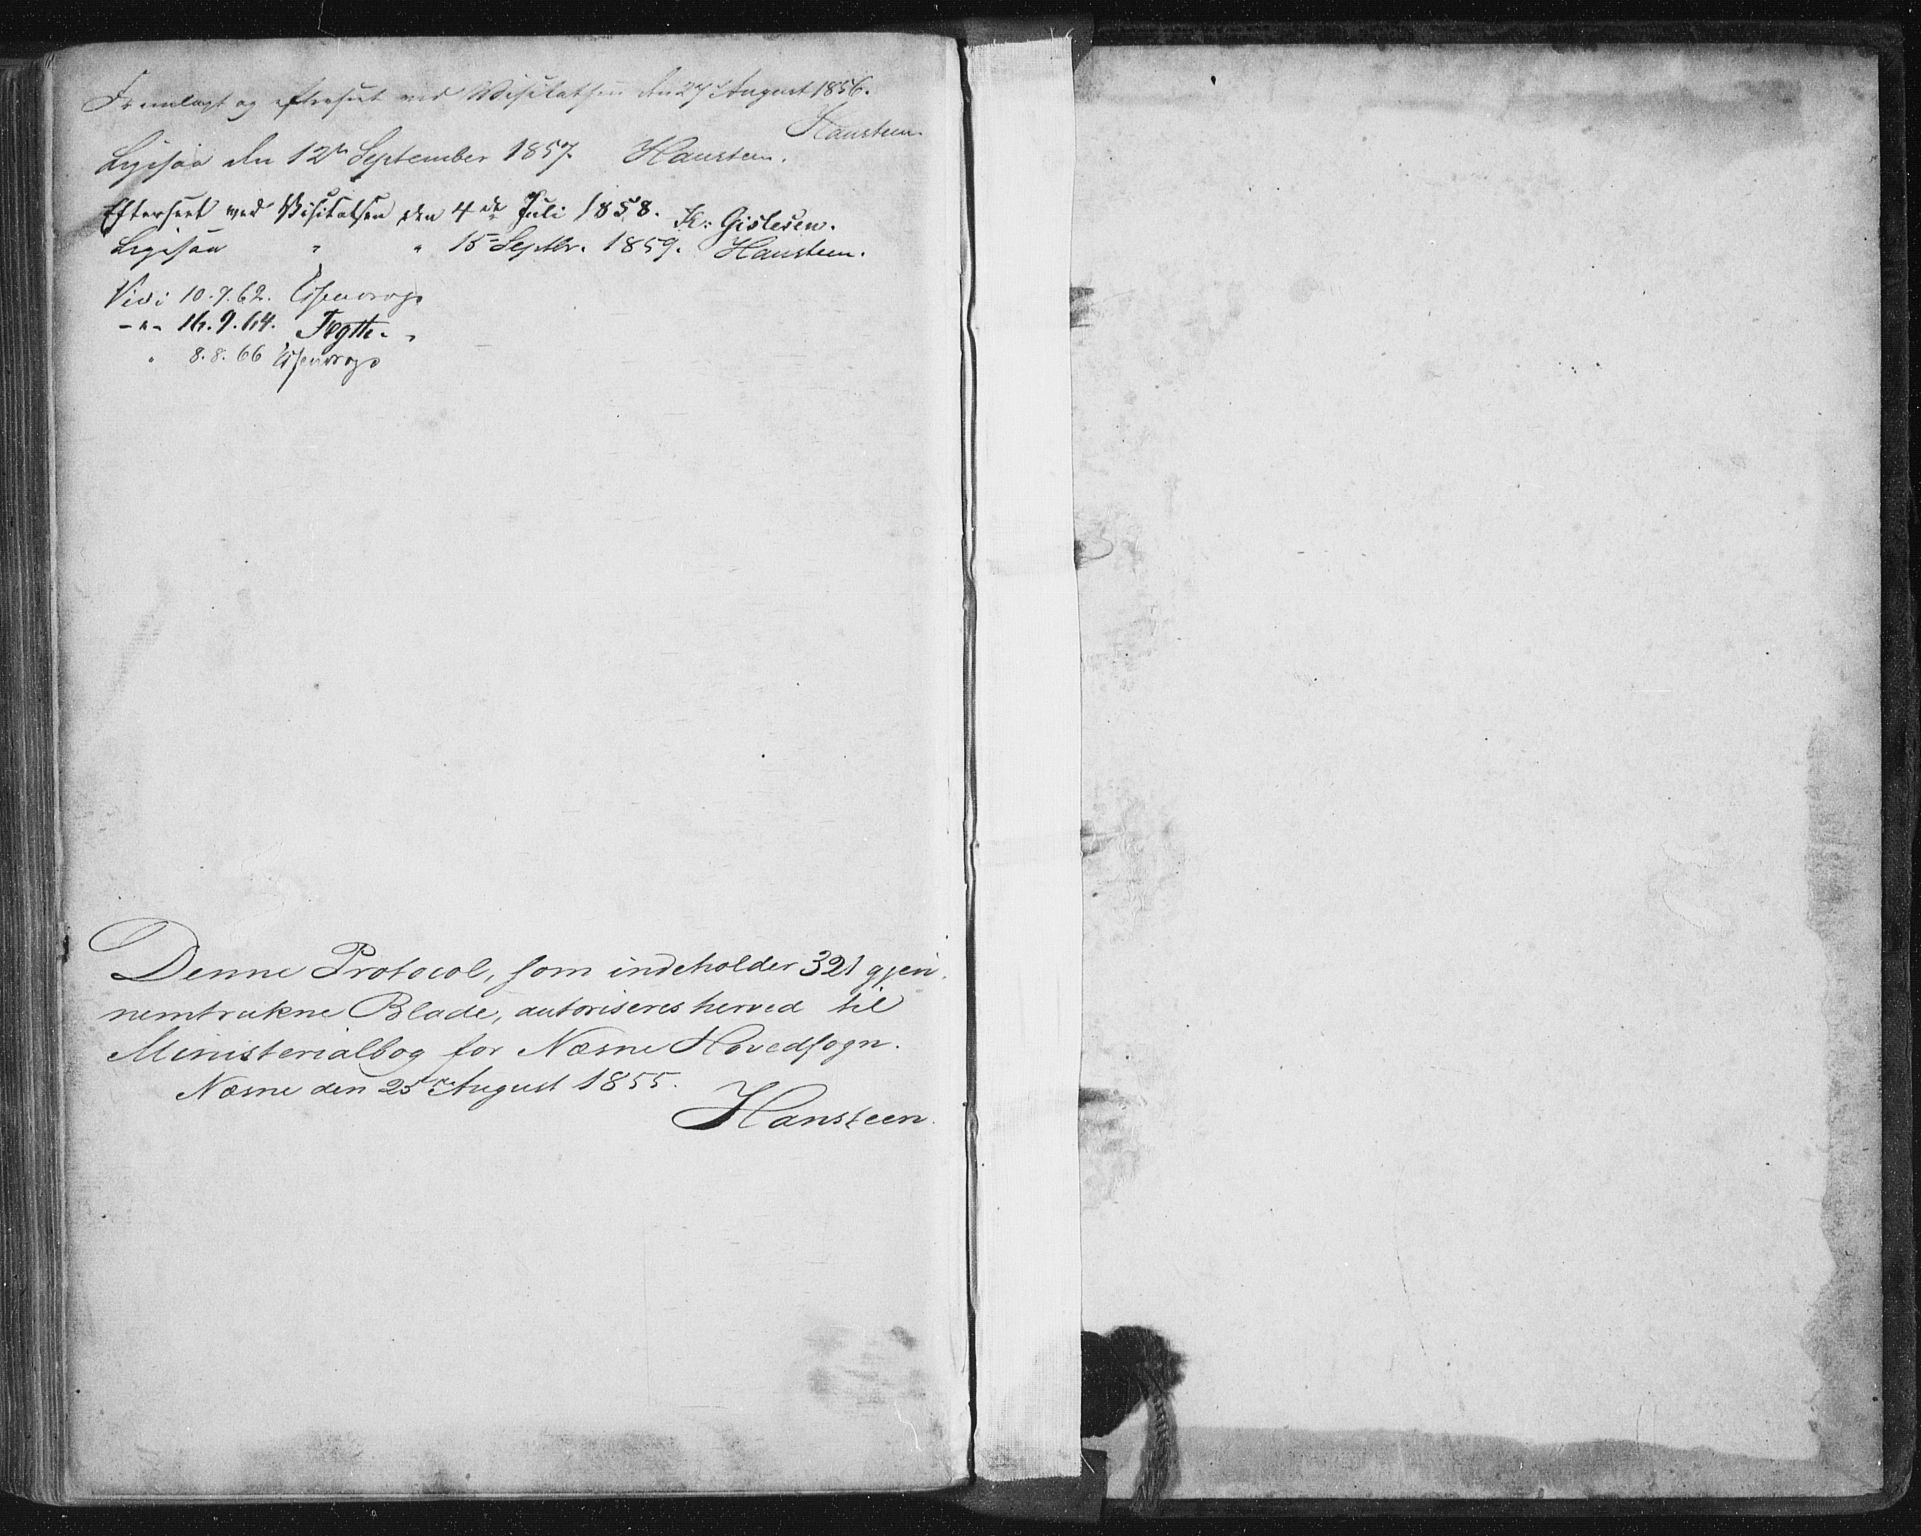 Fremlagt og efterseet ved Visitatsen den 27 August 1856.
Hansteen.
Ligesaa den 12te September 1857. Hansteen.
Efterseet ved Visitatsen den 4de Juli 1858. Kr: Gislesen.
Ligesaa " " 15 Septbr. 1859. Hansteen.
Vidi 10.7.62. Essendrop
-"- 16.9.64. Tegth.
" 8.8.66 Essendrop
Denne Protocol, som indeholder 321 gjen-
nemtrukne Blade, autoriseres herved til
Ministerialbog for Næsne Hovedsogn.
Næsne den 25de August 1855.
Hansteen.